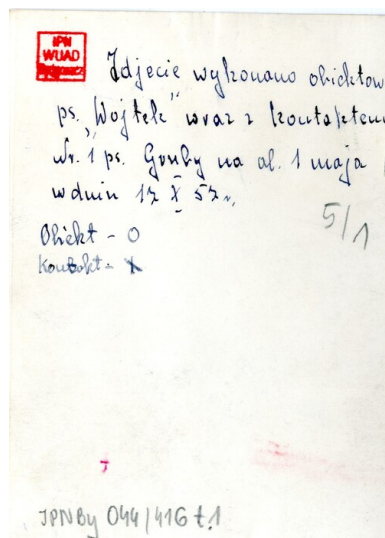 IPN
WUAD
Zdjęcie wykonano obiektow
ps. „Wojtek” wraz z kontaktem
Nr. 1 ps. Gruby na al. 1 maja
w dniu 17 X 57 r,
5/1
Obiekt - O
Kontakt - X
IPNBy 044/416 t.1